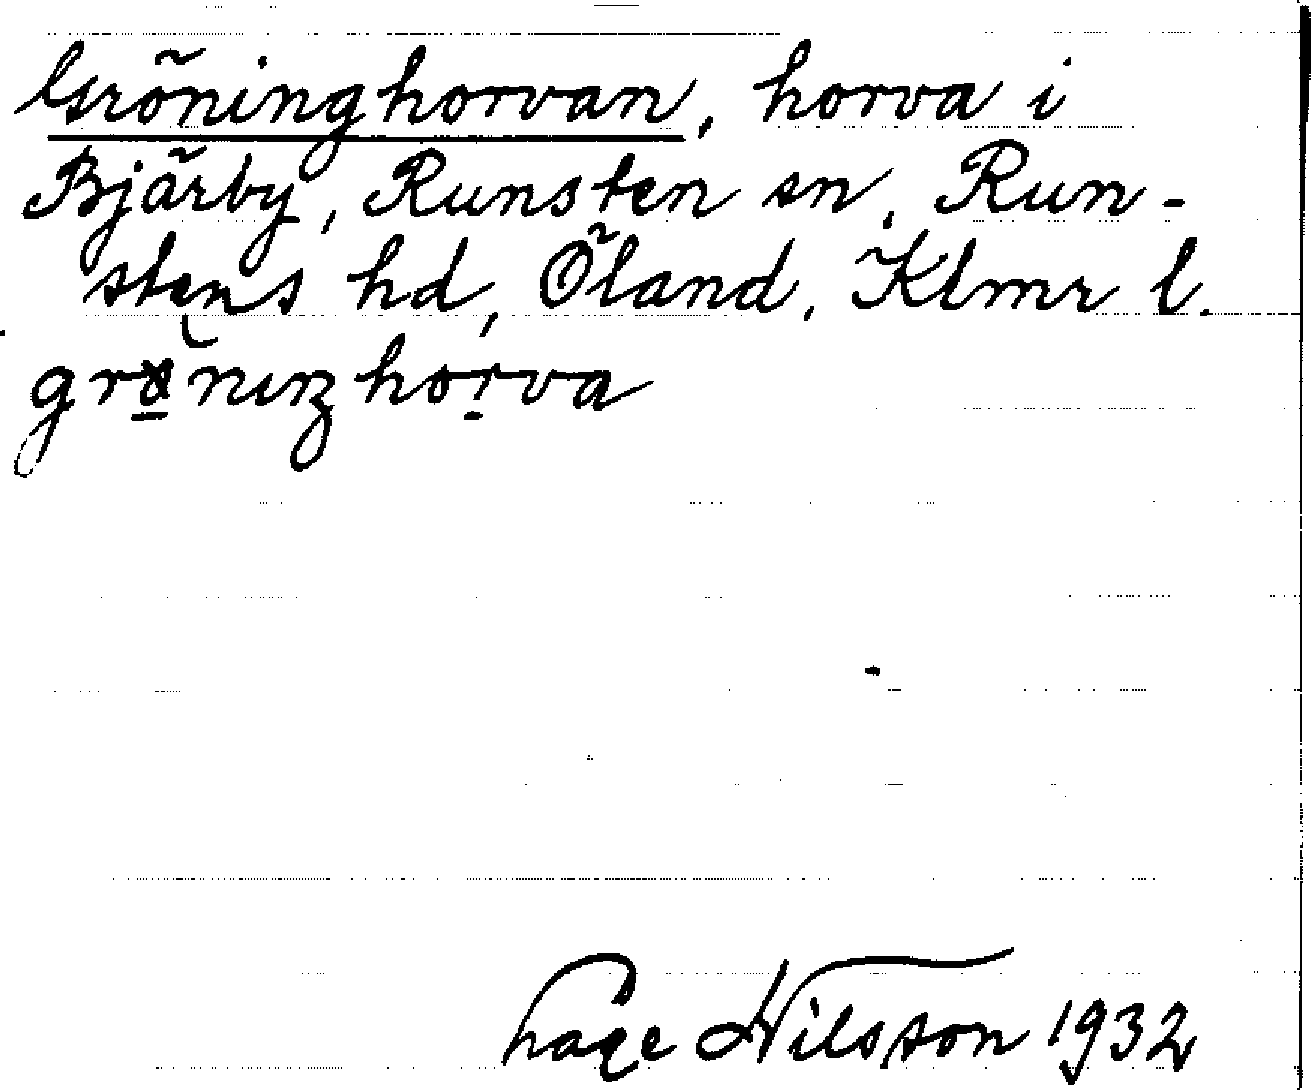 Gröninghorvan, horva i
Bjärby, Runsten sn, Run-
stens hd, Öland, Klmr l.
grönıŋhorva
Hage Nilsson 1932